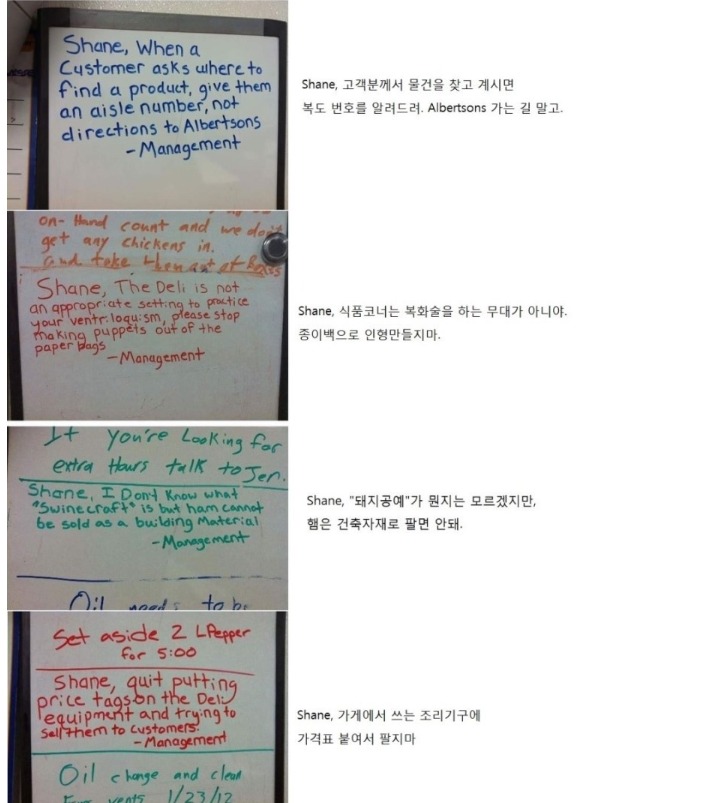 Shane, When a
Customer asks where to
find a product, give them
an aisle number, not
directions to Albertsons
- Management
Shane, 고객분께서 물건을 찾고 계시면
복도 번호를 알려드려. Albertsons 가는 길 말고.
on-Hand count and we don't
get any chickens in.
and take them out of Boxes
Shane, The Deli is not
an appropriate setting to practice
your ventriloquism, please stop
making puppets out of the
paper bags
- Management
Shane, 식품코너는 복화술을 하는 무대가 아니야.
종이백으로 인형만들지마.
If you're Looking for
extra Hours talk to Jen.
Shane, I Don't Know what
"Swinecraft" is but ham cannot
be sold as a building Material
- Management
Oil needs to be
Shane, "돼지공예"가 뭔지는 모르겠지만,
햄은 건축자재로 팔면 안돼.
Set aside 2 LPepper
for 5:00
Shane, quit putting
price tags on the Deli
equipment and trying to
sell them to customers.
- Management
Oil change and clean
vents 1/23/12
Shane, 가게에서 쓰는 조리기구에
가격표 붙여서 팔지마